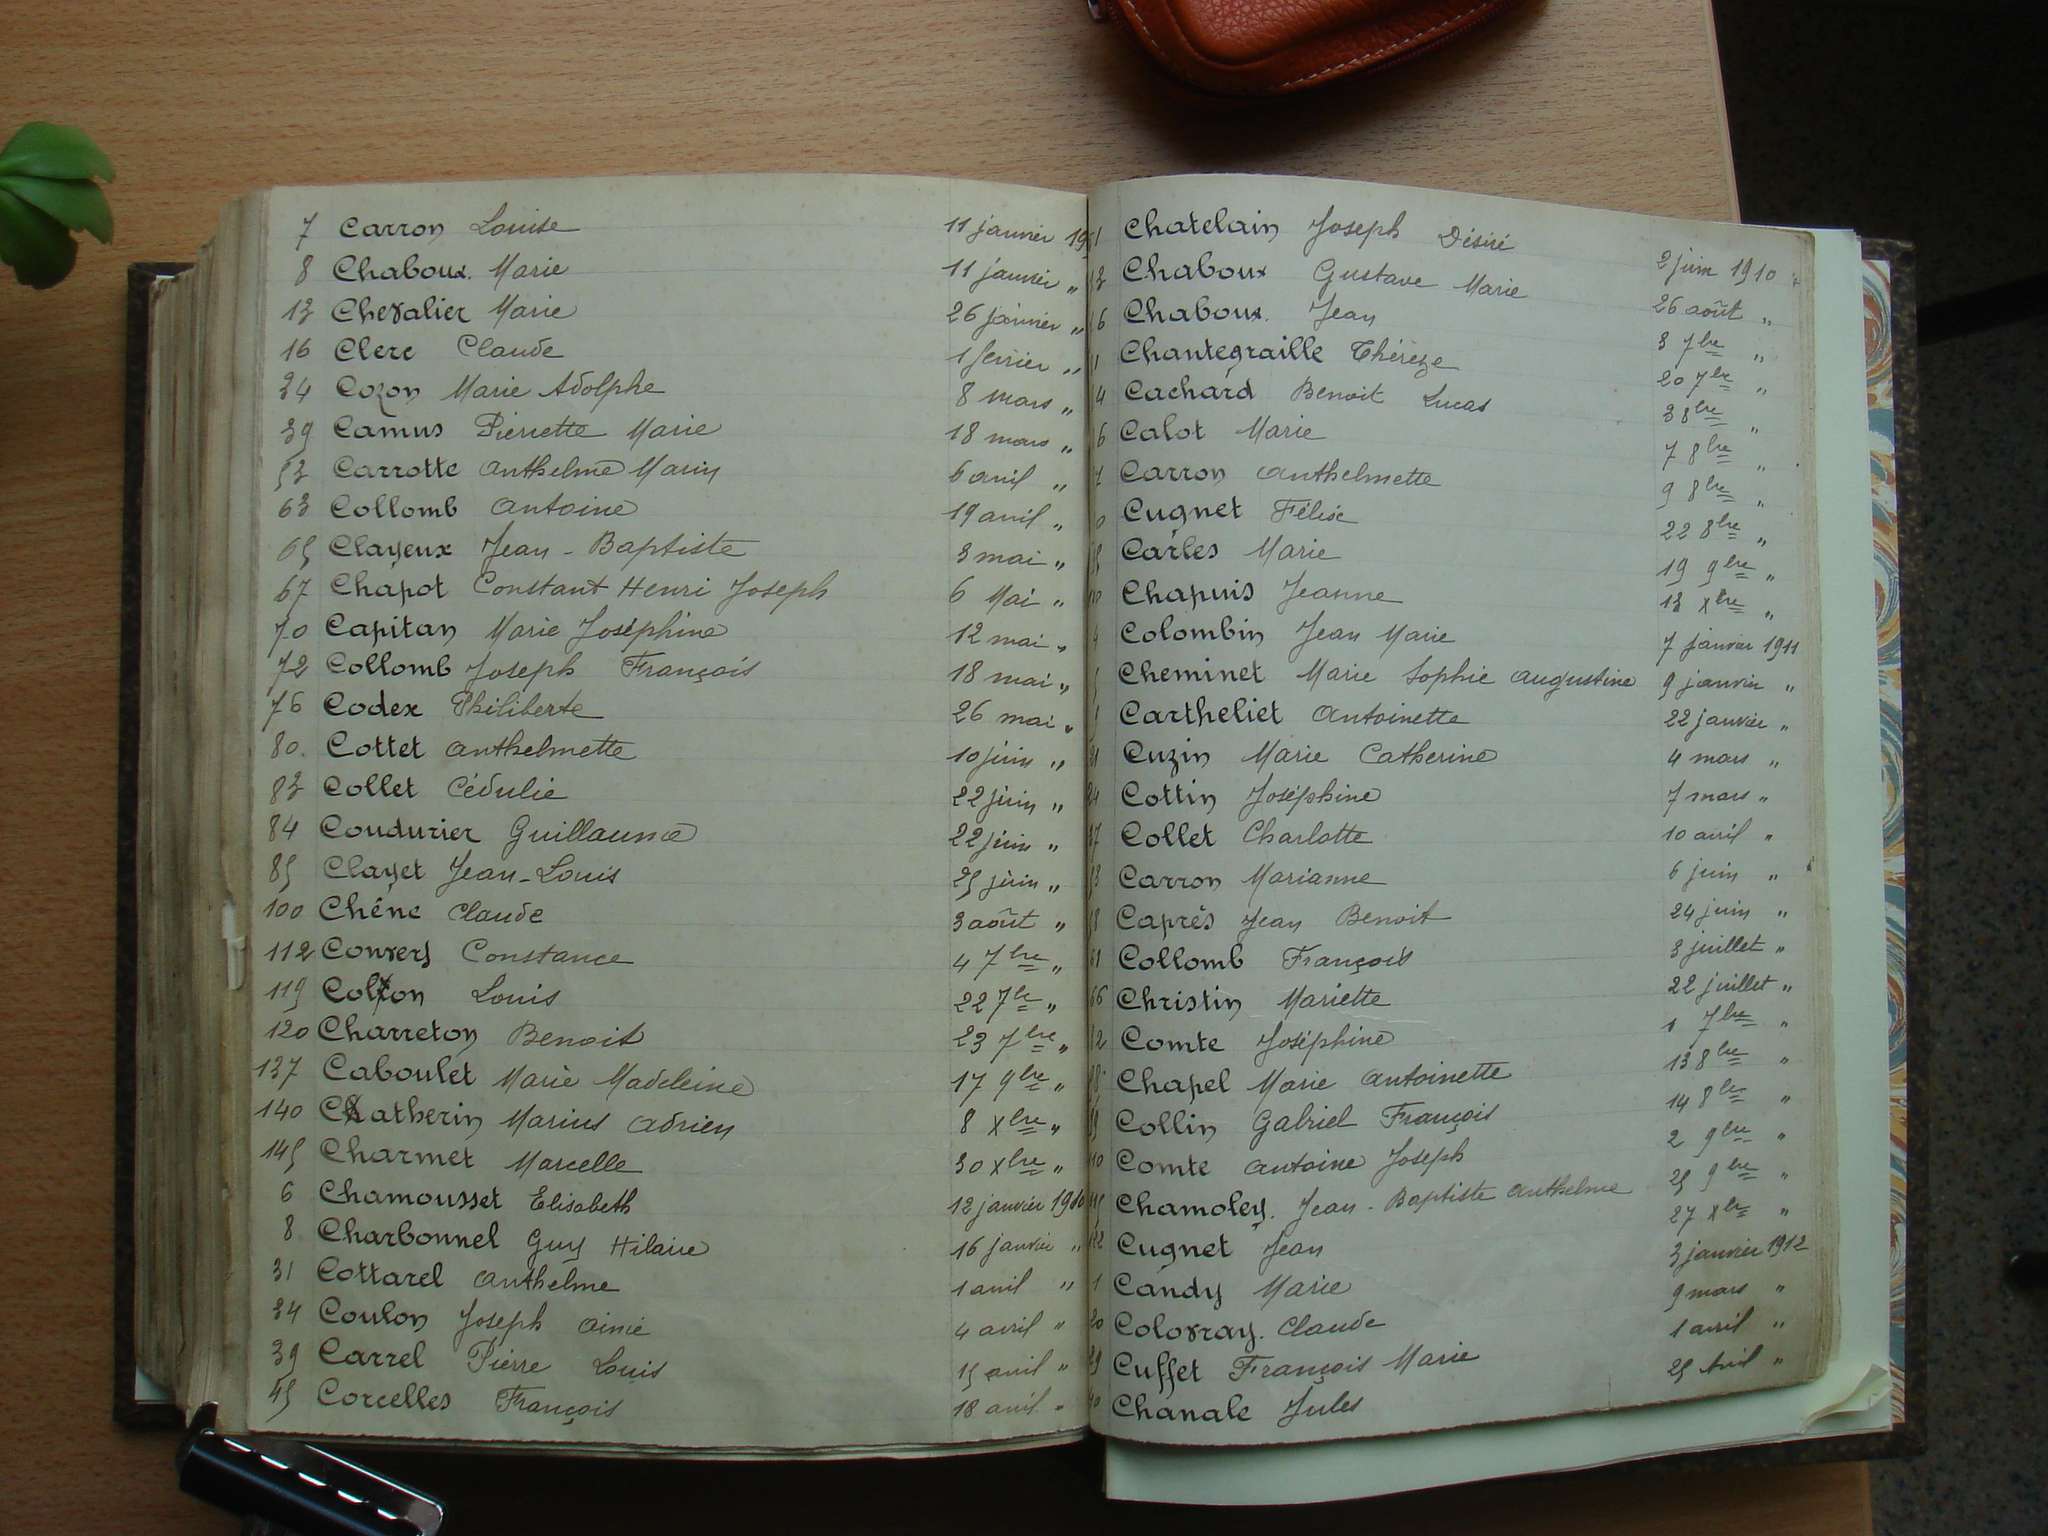 7 Carron Louise 11 janvier 19
8 Chaboux. Marie 11 janvier "
13 Chevalier Marie 26 janvier "
16 Clerc Claude 1 février "
34 Cozon Marie Adolphe 8 mars "
39 Camus Pierrette Marie 18 mars "
53 Carrotte Anthelme Marin 6 avril "
63 Collomb Antoine 19 avril "
65 Clayeux Jean-Baptiste 3 mai "
67 Chapot Constant Henri Joseph 6 Mai "
70 Capitan Marie Joséphine 12 mai "
72 Collomb Joseph François 18 mai "
76 Codex Philiberte 26 mai "
80. Cottet Anthelmette 10 juin "
83 Collet Cédulie 22 juin "
84 Coudurier Guillaume 22 juin "
85 Clayet Jean-Louis 25 juin "
100 Chêne Claude 3 août "
112 Convers Constance 4 7bre "
119 Colon Louis 22 7bre "
120 Charreton Benoit 23 7bre "
137 Caboulet Marie Madeleine 17 9bre "
140 Catherin Marius Adrien 8 Xbre "
145 Charmet Marcelle 30 Xbre "
6 Chamousset Elisabeth 12 janvier 1910
8 Charbonnel Guy Hilaire 16 janvier "
31 Cottarel Anthelme 1 avril "
34 Coulon Joseph Aimé 4 avril "
39 Carrel Pierre Louis 15 avril "
45 Corcelles François 18 avril "
Chatelain Joseph Désiré 2 juin 1910
Chaboux Gustave Marie 26 août "
Chaboux. Jean 3 7bre "
Chantegraille Thérèze 20 7bre "
Cachard Benoit Lucas 3 8bre "
Calot Marie 7 8bre "
Carron Anthelmette 9 8bre "
Cugnet Félix 22 8bre "
Carles Marie 19 9bre "
Chapuis Jeanne 13 Xbre "
Colombin Jean Marie 7 janvier 1911
Cheminet Marie Sophie Augustine 9 janvier "
Cartheliet Antoinette 22 janvier "
Cuzin Marie Catherine 4 mars "
Cottin Joséphine 7 mars "
Collet Charlotte 10 avril "
Carron Marianne 6 juin "
Caprés Jean Benoit 24 juin "
Collomb François 3 juillet "
Christin Mariette 22 juillet "
Comte Joséphine 1 7bre "
Chapel Marie Antoinette 13 8bre "
Collin Gabriel François 14 8bre "
Comte Antoine Joseph 2 9bre "
Chamoley. Jean-Baptiste Anthelme 25 9bre "
Cugnet Jean 27 Xbre "
Candy Marie 3 janvier 1912
Colovray. Claude 9 mars "
Cuffet François Marie 1 avril "
Chanale Jules 25 Avril "